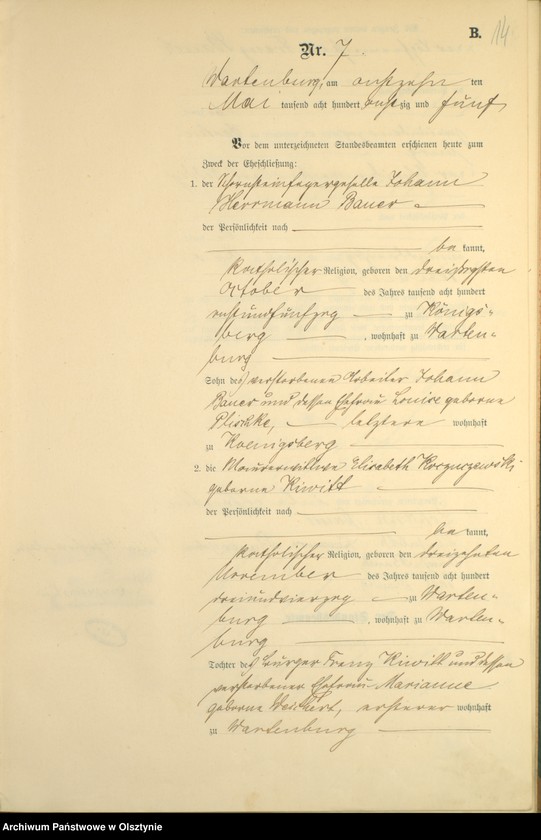 B. 14
Nr. 7
Wartenburg, am achtzehn ten
Mai tausend acht hundert achtzig und fünf
Vor dem unterzeichneten Standesbeamten erschienen heute zum
Zweck der Eheschließung:
1. der Schornsteinfegergeselle Johann
Herrmann Bauer
der Persönlichkeit nach
be kannt,
katholischer Religion, geboren den dreißigsten
October des Jahres tausend acht hundert
achtundfünfzig zu Königs-
berg, wohnhaft zu Warten-
burg
Sohn des verstorbenen Arbeiter Johann
Bauer und dessen Ehefrau Louise geborene
letztere wohnhaft
zu Koenigsberg
2. die Maurerwittwe Elisabeth
geborene Kiwitt
der Persönlichkeit nach
be kannt,
katholischer Religion, geboren den dreizehnten
November des Jahres tausend acht hundert
dreiundvierzig zu Warten-
burg, wohnhaft zu Warten-
burg
Tochter des Bürger Franz Kiwitt und dessen
verstorbener Ehefrau Marianne
geborne Weichert, ersterer wohnhaft
zu Wartenburg
Archiwum Państwowe w Olsztynie